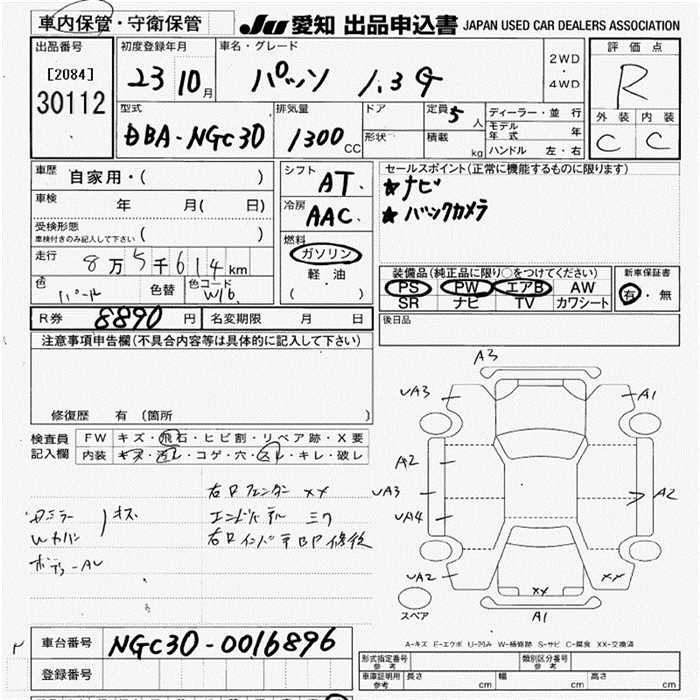 車内保管・守衛保管
JU 愛知 出品申込書 JAPAN USED CAR DEALERS ASSOCIATION
出品番号
[2084]
30112
初度登録年月
23 10月
車名・グレード
パッソ 1.3G
2WD
・
4WD
評価点
R
外装 内装
C C
型式
DBA-NGC30
排気量
1300CC
ドア
形状
定員 5人
積載 kg
ディーラー・並行
モデル年式 年
ハンドル 左・右
車歴 自家用・( )
車検 年 月( 日)
受検形態
車検付きのみ記入して下さい ( )
走行 8万5千614km
色 パール 色替 色コード W16
シフト AT.
冷房 AAC.
燃料
ガソリン
軽・油
( )
セールスポイント(正常に機能するものに限ります)
★ナビ
★バックカメラ
装備品(純正品に限り○をつけてください)
PS PW エアB AW
SR ナビ TV カワシート
新車保証書
有・無
R券 8890円 名変期限 月 日
後日品
注意事項申告欄(不具合内容等は具体的に記入して下さい)
修復歴 有 (箇所 )
検査員記入欄
FW キズ・飛石・ヒビ割・リペア跡・X要
内装 キズ・汚レ・コゲ・穴・スレ・キレ・破レ
右Rフェンダー XX
キズ
A3
UA3 A1
A2
UA3 A2
UA4
UA2 XX XX
A1
スペア
A-キズ E-エクボ U-凹み W-補修跡 S-サビ C-腐食 XX-交換済
車台番号 NGC30-0016896
登録番号
型式指定番号 参考
類別区分番号 参考
車庫証明用 参考 長さ cm 幅 cm 高さ cm